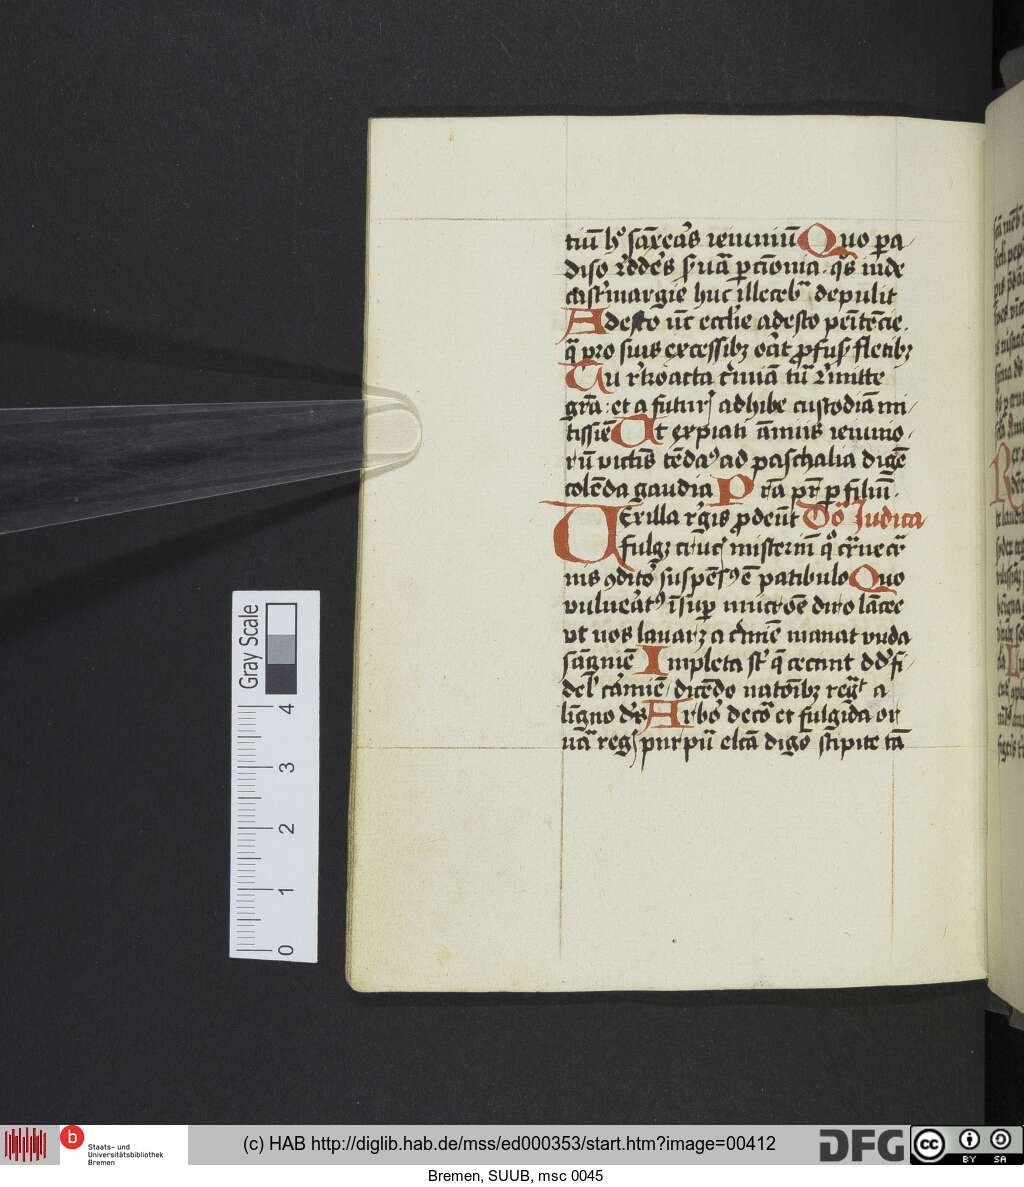 tiū h° sāxcās ieiuniū Quo pa
diso r̄ddēs s̓uā pcīonia. q̄s inde
cast̓margie huc illeceb̄ depulit
Adesto n̄c eccl̄ie adesto penitēcie.
q̄ pro suis excessibꝫ or̄at ꝓfusꝭ fletibꝫ
Tu r̓troacta c̓minā tuā r̓mitte
gr̄a: et a futurꝭ adhibe custodiam mi
tissiē Ut expiati ām̄uis ieiunio
rū victīs tēdaꝰ ad paschalia digē
colēda gaudia Pr̄a pr̄ p filiū.
Uexilla r̄gis ꝓdeūt Dō Judica
fulgꝫ cr̓ucꝭ misteriū q° carne car̄
nis ↄditor̄ suspēsꝰ ē patibulo Quo
vulneātꝰ īsup mucrōe diro lācee
vt nos lauarꝫ a c̓mīe manat vnda
sāgnīe Impleta st̓ q̄ cecinit dd̄ fi
del̓ cāmīe dicēdo natōibꝫ regt̄ a
līgno dr̄s Arbor̄ decōr et fulgida or
nāt regꝭ purpūa elcā digō stipite tā
Gray Scale
4
3
2
1
0
b
Staats- und
Universitätsbibliothek
Bremen
(c) HAB http://diglib.hab.de/mss/ed000353/start.htm?image=00412
DFG
cc
BY SA
Bremen, SUUB, msc 0045